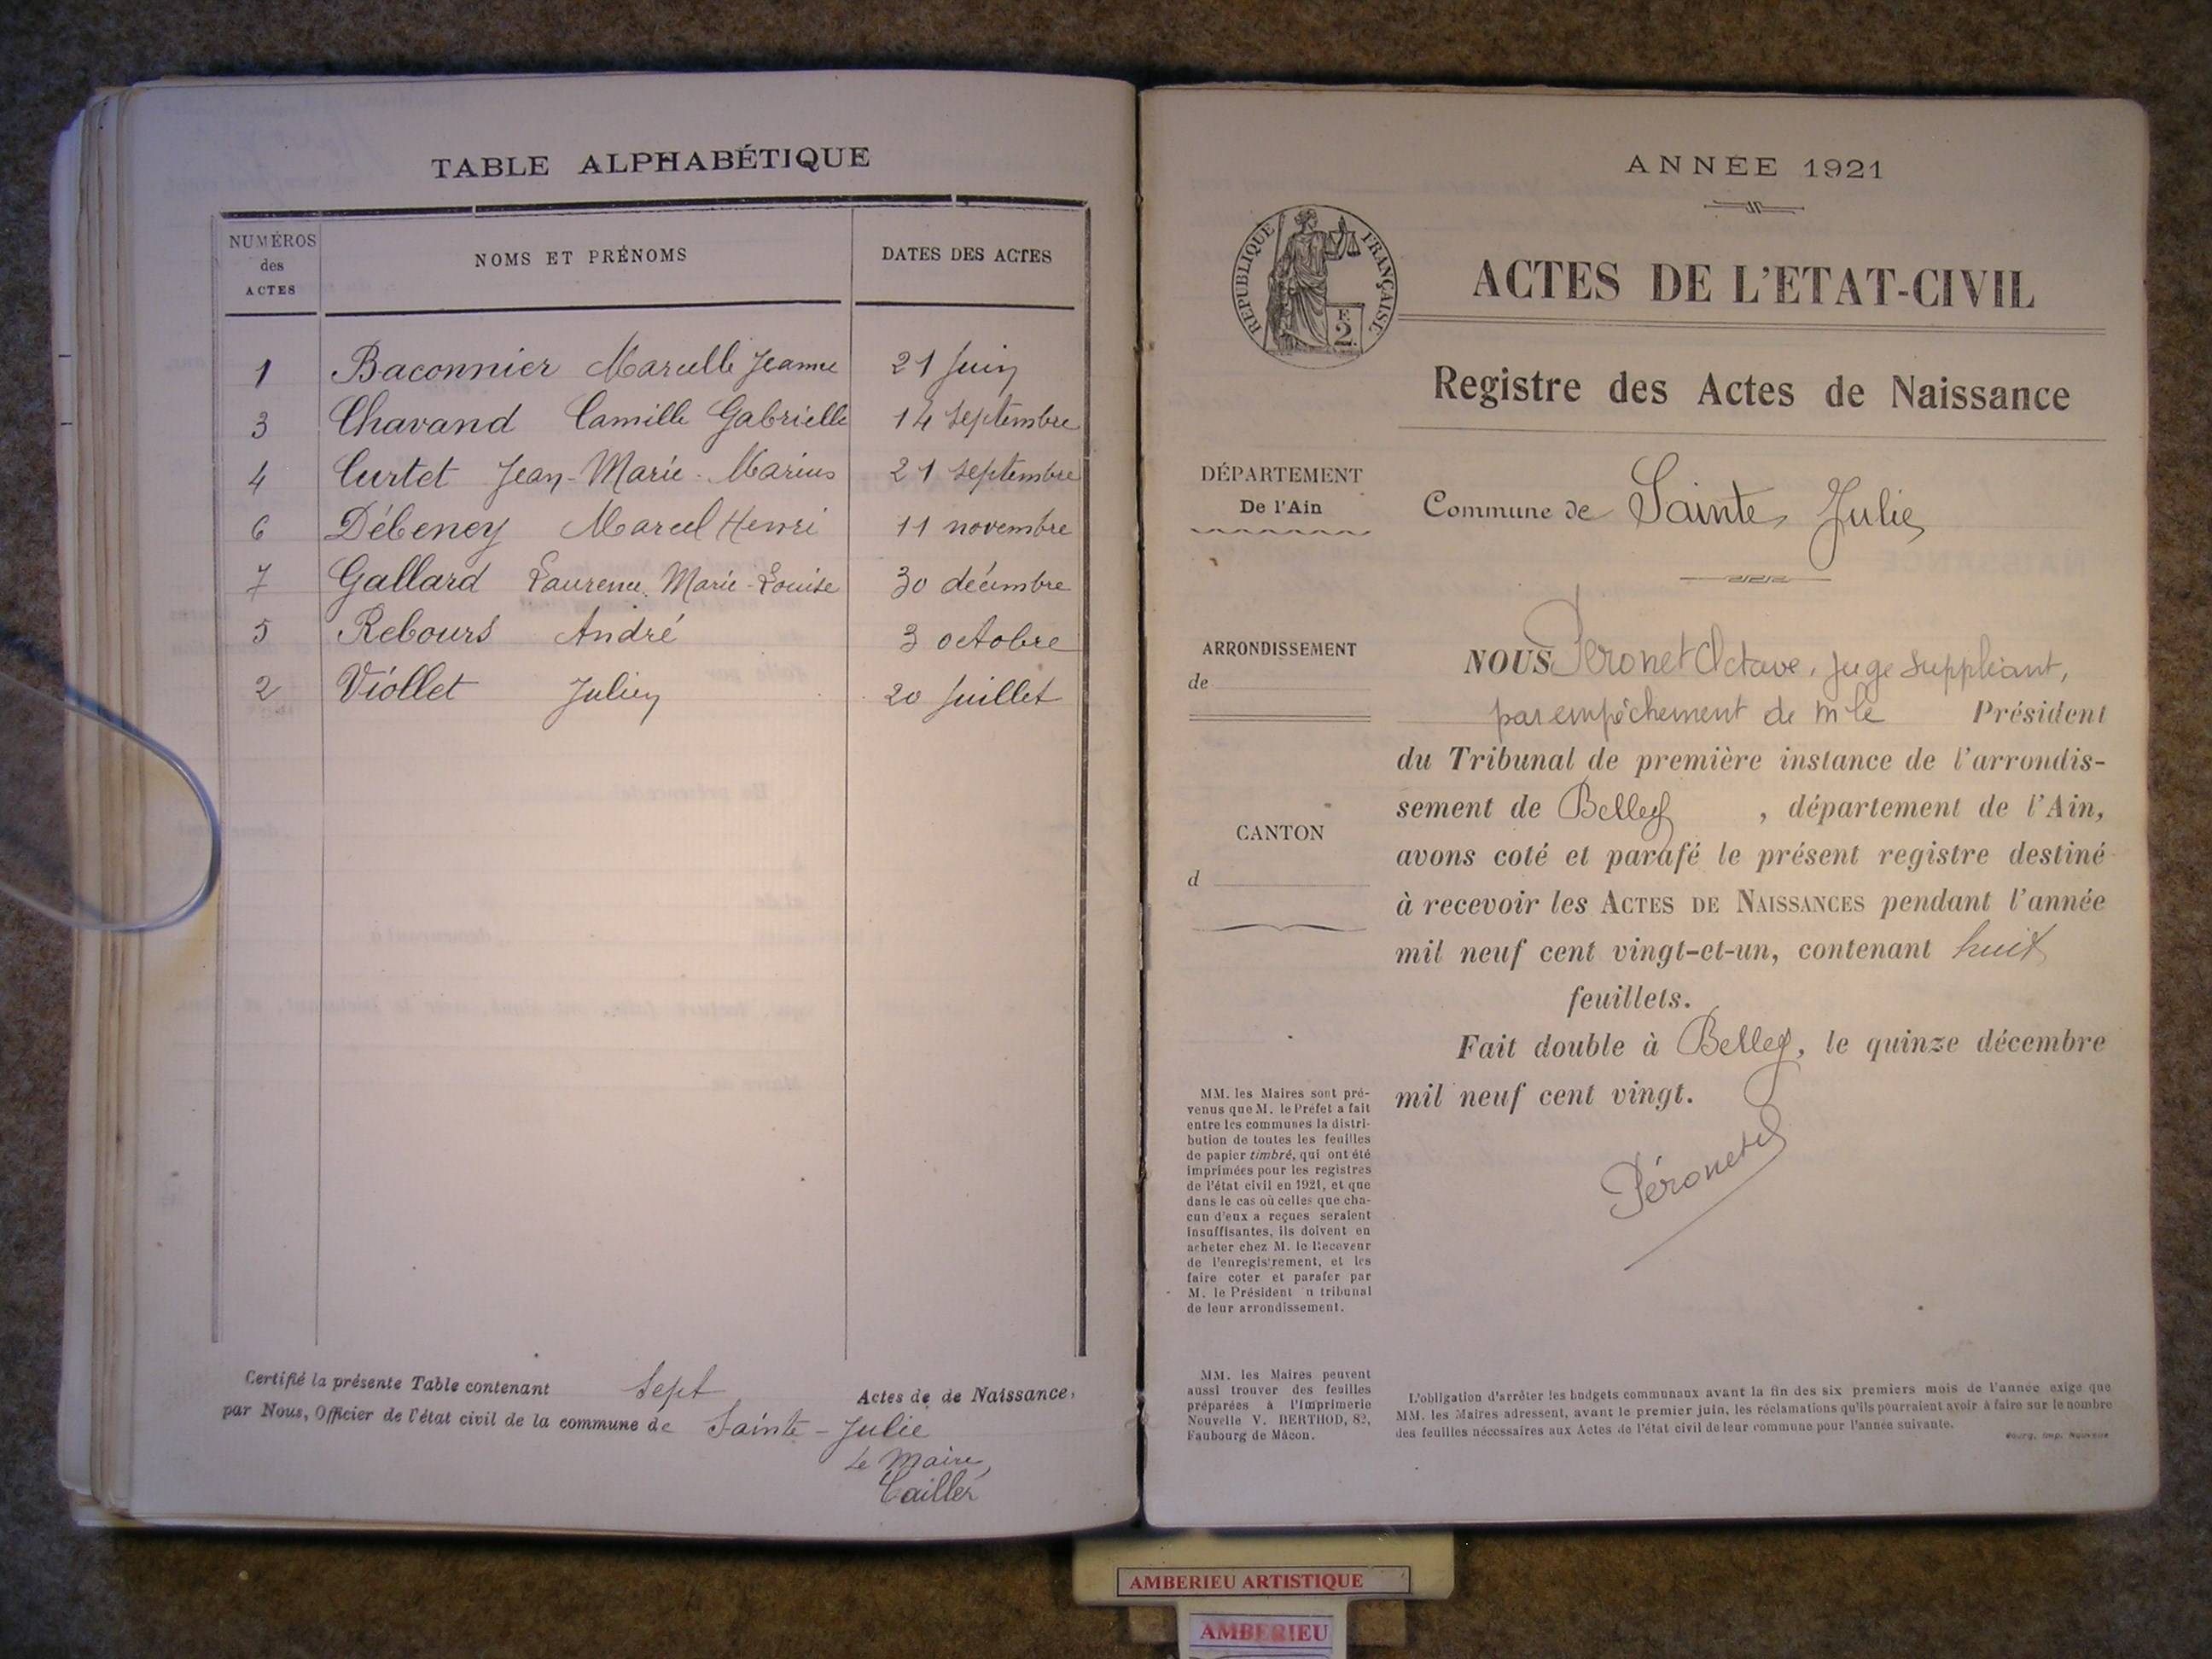 TABLE ALPHABÉTIQUE
NUMÉROS des ACTES NOMS ET PRÉNOMS DATES DES ACTES
1 Baconnier Marcelle Jeanne 21 Juin
3 Chavand Camille Gabrielle 14 septembre
4 Curtet Jean-Marie-Marius 21 septembre
6 Débeney Marcel Henri 11 novembre
7 Gallard Laurence Marie-Louise 30 décembre
5 Rebours André 3 octobre
2 Viollet Julien 20 juillet
Certifié la présente Table contenant Sept Actes de de Naissance,
par Nous, Officier de l'état civil de la commune de Sainte-Julie
Le Maire,
ANNÉE 1921
RÉPUBLIQUE FRANÇAISE
F.
2
ACTES DE L'ETAT-CIVIL
Registre des Actes de Naissance
DÉPARTEMENT
De l'Ain
Commune de Sainte Julie
ARRONDISSEMENT
de
CANTON
d
NOUS Péronet Octave, juge suppléant,
par empêchement de M le Président
du Tribunal de première instance de l'arrondis-
sement de Belley, département de l'Ain,
avons coté et parafé le présent registre destiné
à recevoir les ACTES DE NAISSANCES pendant l'année
mil neuf cent vingt-et-un, contenant huit
feuillets.
Fait double à Belley, le quinze décembre
mil neuf cent vingt.
Péronet
MM. les Maires sont pré-
venus que M. le Préfet a fait
entre les communes la distri-
bution de toutes les feuilles
de papier timbré, qui ont été
imprimées pour les registres
de l'état civil en 1921, et que
dans le cas où celles que cha-
cun d'eux a reçues seraient
insuffisantes, ils doivent en
acheter chez M. le Receveur
de l'enregistrement, et les
faire coter et parafer par
M. le Président u tribunal
de leur arrondissement.
MM. les Maires peuvent
aussi trouver des feuilles
préparées à l'Imprimerie
Nouvelle V. BERTHOD, 82,
Faubourg de Mâcon.
L'obligation d'arrêter les budgets communaux avant la fin des six premiers mois de l'année exige que
MM. les Maires adressent, avant le premier juin, les réclamations qu'ils pourraient avoir à faire sur le nombre
des feuilles nécessaires aux Actes de l'état civil de leur commune pour l'année suivante.
Bourg, Imp. Nouvelle
AMBERIEU ARTISTIQUE
AMBERIEU